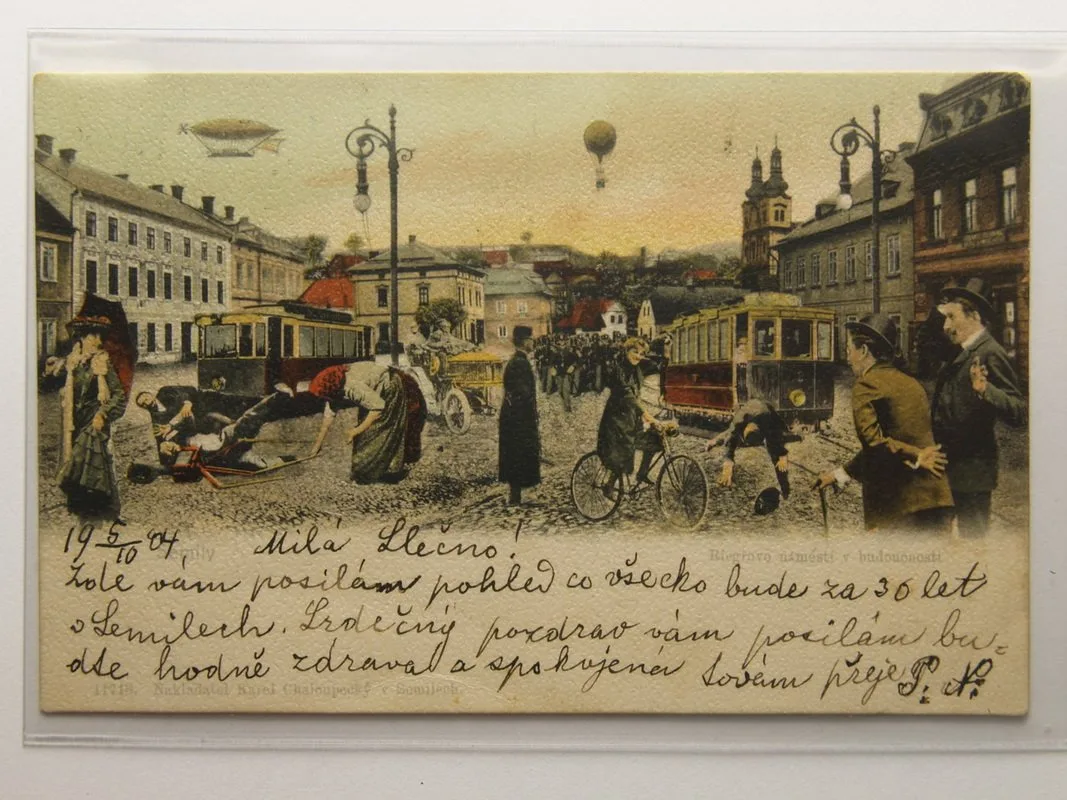 19 5/10 04 Milá Slečno!
Semily
Riegrovo náměstí v budoucnosti
Zde vám posílám pohled co všecko bude za 30 let
v Semilech. Srdečný pozdrav vám posílám bu-
dte hodně zdrava a spokojená to vám přeje P. N.
Nakladatel Karel Chaloupecký v Semilech.